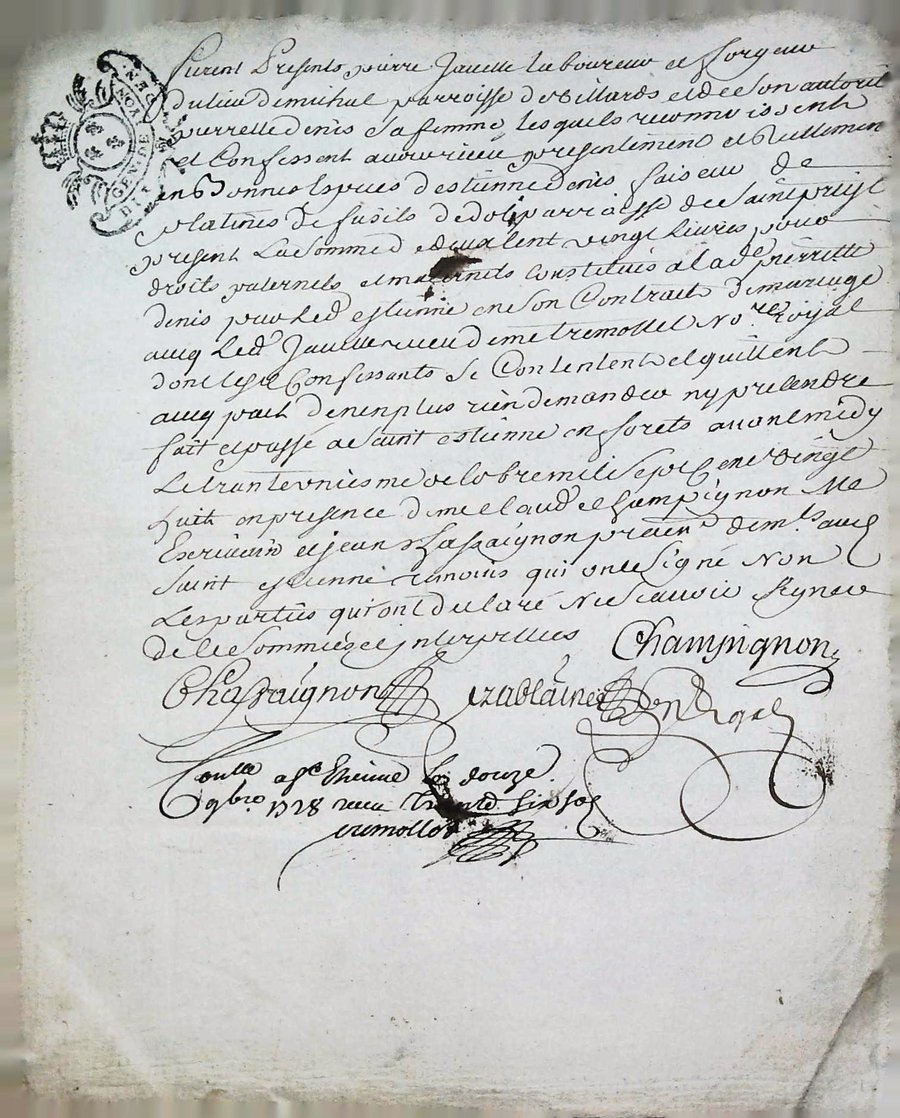 GEN. DE LYON
DEN
DIX
furent Presents pierre Javelle laboureur et forgeur
du lieu demichal parroisse de Villards et de son autorité
pierrette denis sa femme lesquels reconnoissent
et Confessent avoir receu presentement et reellement
en bonnes espèces d'estienne denis faiseur de
platines de fusils parroisse de Saint priest
present La somme de deux Cent vingt Livres pour
droits paternels et maternels Constitués a lad.e pierrette
denis par Led. estienne en son Contrait de mariage
avecq Led. Javelle receu de me tremollet No.re Royal
dont Les Confessants se Contentent et quittent
avecq pact de nen plus rien demander ny pretendre
fait et passé a Saint estienne en forets avant midy
Le trante uniesme octobre mil sept Cent Vingt
huit en presence de me Claude Champignon Me
Escrivain et jean Chaspaignon
Saint estienne temoins qui ont Signé Non
Les parties qui ont declaré Ne sçavoir Signer
de Ce Sommées et interpellées
Champignon
Chaspaignon
Con.lle a St. Etienne le douze
9bre 1728 receu Trente Six sols
tremollet